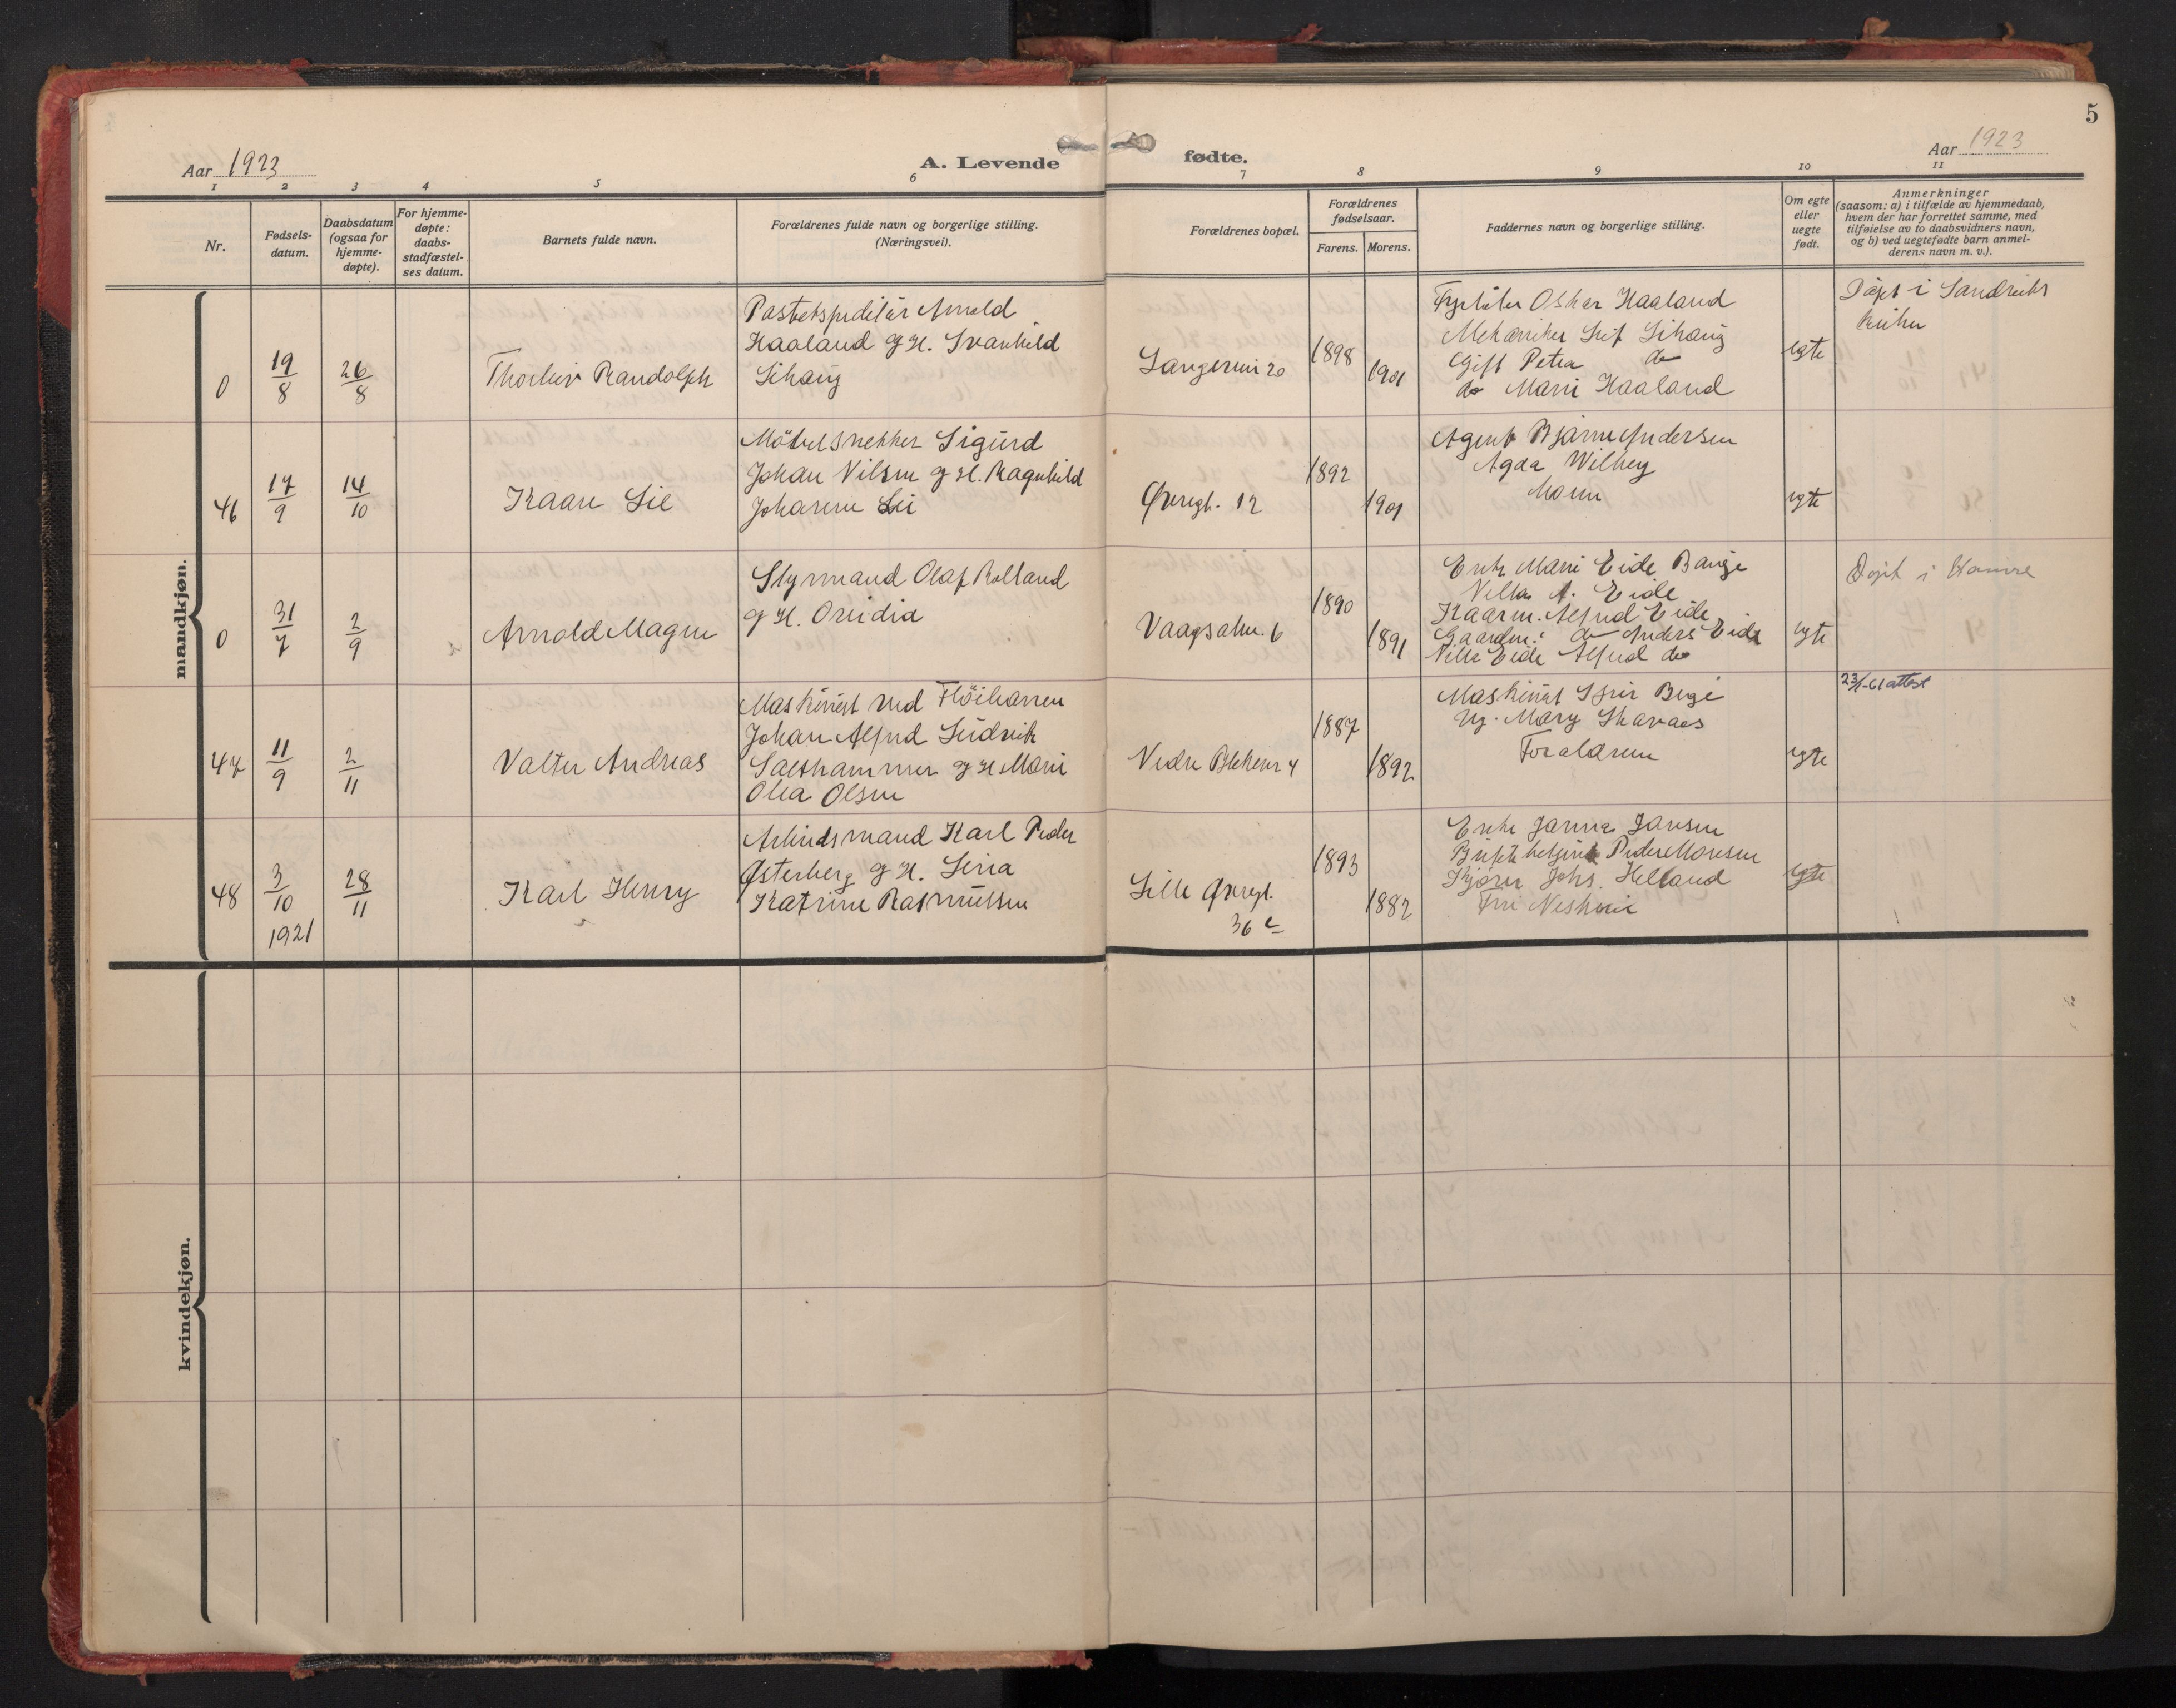 5
Aar 1923
A. Levende
fødte.
Aar 1923
1 2 3 4 5 6 7 8 9 10 11
Nr.
Fødsels-
datum.
Daabsdatum
(ogsaa for
hjemme-
døpte).
For hjemme-
døpte:
daabs-
stadfæstel-
ses datum.
Barnets fulde navn.
Forældrenes fulde navn og borgerlige stilling.
(Næringsvei).
Forældrenes bopæl.
Forældrenes
fødselsaar.
Farens. Morens.
Faddernes navn og borgerlige stilling.
Om egte
eller
uegte
født.
Anmerkninger
(saasom: a) i tilfælde av hjemmedaab,
hvem der har forrettet samme, med
tilføielse av to daabsvidners navn,
og b) ved uegtefødte barn anmel-
derens navn m. v.).
mandkjøn.
0
19/8
26/8
Randolph
Arnold
Haaland og H. Svanhild
Sihaug
20
1898
1901
Oskar Haaland
Mekaniker Leif Sihaug
Gift Petra do
do Marie Haaland
egte
Döpt i
46
17/9
14/10
Kaare Lie
Möbelsnekker Sigurd
Johan Nilsen og H. Ragnhild
Johanne Lie
Øvregt. 12
1892
1901
Agent Bjarne Andersen
Agda
Moren
egte
0
31/7
2/9
Arnold Magne
Styrmand Olaf Rolland
og H. Ovidia
6
1890
1891
Enke Marie Eide
A. Eide
Alfred Eide
do Anders Eide
Eide Alfred do
egte
Döpt i Hamre
47
11/9
2/11
Valter Andreas
Maskinist ved Flöibanen
Johan Alfred Ludvik
og H Marie
Olea Olsen
Nedre Blekevei 4
1887
1892
Maskinist
Ug. Mary Skavaas
Foraldrene
egte
23/1-61 attest
48
3/10
1921
28/11
Karl Henry
Arbeidsmand Karl Peder
Østerberg og H. Lina
Katrine Rasmussen
Lille Øvregt.
36 c
1893
1882
Enke Janna Jansen
Johs. Helland
egte
kvindekjøn.